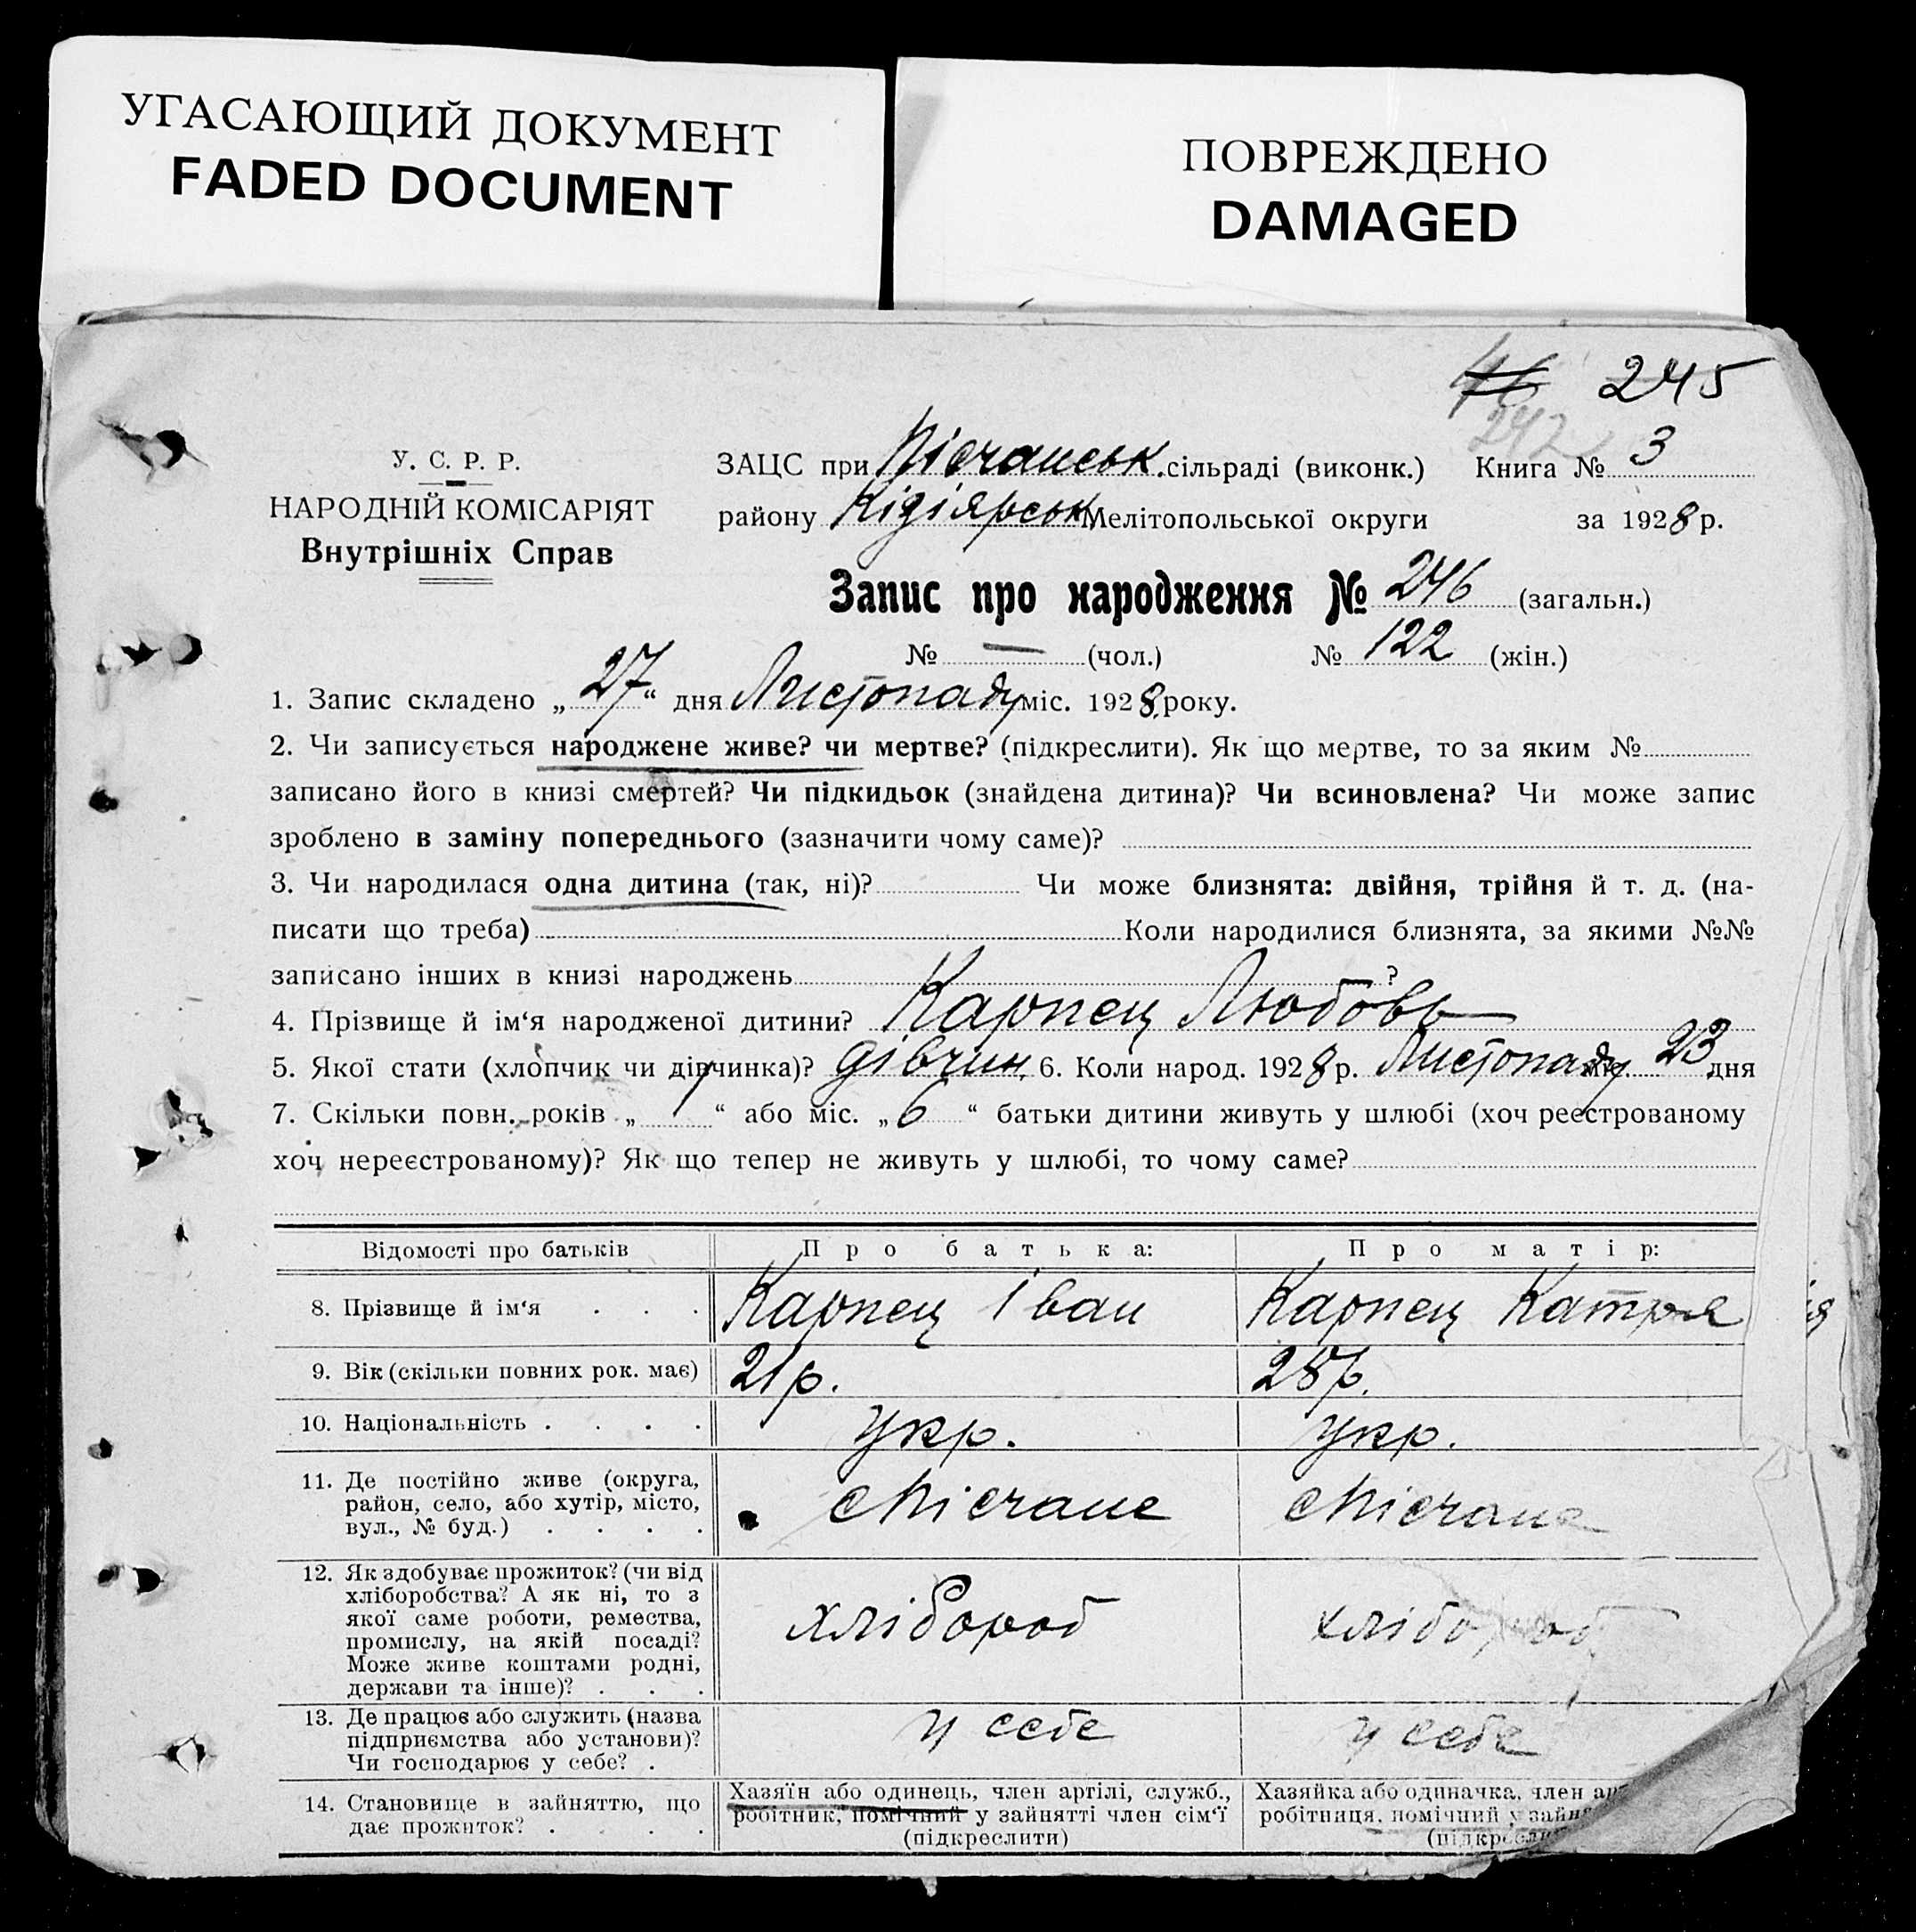 УГАСАЮЩИЙ ДОКУМЕНТ
FADED DOCUMENT
ПОВРЕЖДЕНО
DAMAGED
46 245
242
У. С. Р. Р.
НАРОДНІЙ КОМІСАРІЯТ
Внутрішніх Справ
ЗАЦС при Пісчанськ. сільраді (виконк.) Книга № 3
району Кідіярськ Мелітопольської округи за 1928 р.
Запис про народження № 246 (загальн.)
№ — (чол.) № 122 (жін.)
1. Запис складено „27“ дня Листопаду міс. 1928 року.
2. Чи записується народжене живе? чи мертве? (підкреслити). Як що мертве, то за яким №
записано його в книзі смертей? Чи підкидьок (знайдена дитина)? Чи всиновлена? Чи може запис
зроблено в заміну попереднього (зазначити чому саме)?
3. Чи народилася одна дитина (так, ні)? Чи може близнята: двійня, трійня й т. д. (на-
писати що треба) Коли народилися близнята, за якими №№
записано інших в книзі народжень ?
4. Прізвище й ім‘я народженої дитини? Карпец Любовь
5. Якої стати (хлопчик чи дівчинка)? дівчин. 6. Коли народ. 1928 р. Листопаду міс. 23 дня
7. Скільки повн. років „1“ або міс. „6“ батьки дитини живуть у шлюбі (хоч реєстрованому
хоч нереєстрованому)? Як що тепер не живуть у шлюбі, то чому саме?
Відомості про батьків Про батька: Про матір:
8. Прізвище й ім‘я . . . Карпец Іван Карпец Катря
9. Вік (скільки повних рок. має) 21 р. 28 р.
10. Національність . . . . укр. укр.
11. Де постійно живе (округа,
район, село, або хутір, місто,
вул., № буд.) . . . .
с Пісчане с Пісчане
12. Як здобуває прожиток? (чи від
хліборобства? А як ні, то з
якої саме роботи, ремества,
промислу, на якій посаді?
Може живе коштами родні,
держави та інше)? . . .
хлібороб хлібороб
13. Де працює або служить (назва
підприємства або установи)?
Чи господарює у себе? .
у себе у себе
14. Становище в зайняттю, що
дає прожиток? . . .
Хазяїн або одинець, член артілі, служб.,
робітник, помічний у зайнятті член сім‘ї
(підкреслити)
Хазяйка або одиначка, член
робітниця, помічний у